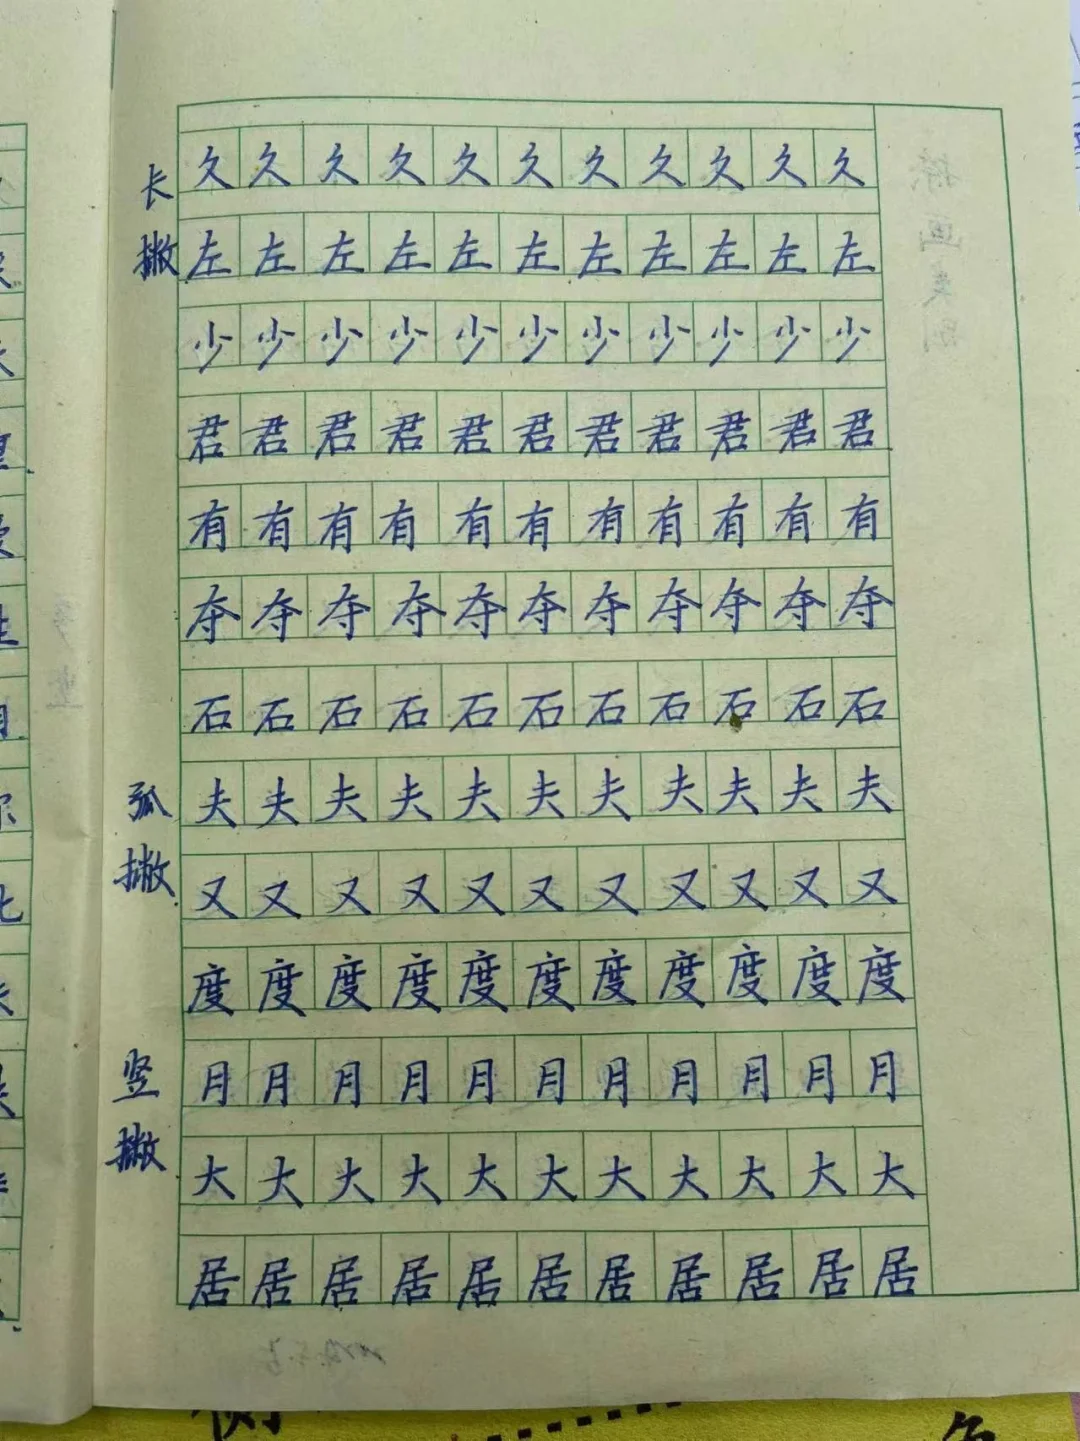 长撇
久久久久久久久久久
左左左左左左左左左左左
少少少少少少少少少少少
君君君君君君君君君君君
有有有有有有有有有有有
夺夺夺夺夺夺夺夺夺夺夺
石石石石石石石石石石石
弧撇
夫夫夫夫夫夫夫夫夫夫夫
又又又又又又又又又又又
度度度度度度度度度度度
竖撇
月月月月月月月月月月月
大大大大大大大大大大大
居居居居居居居居居居居